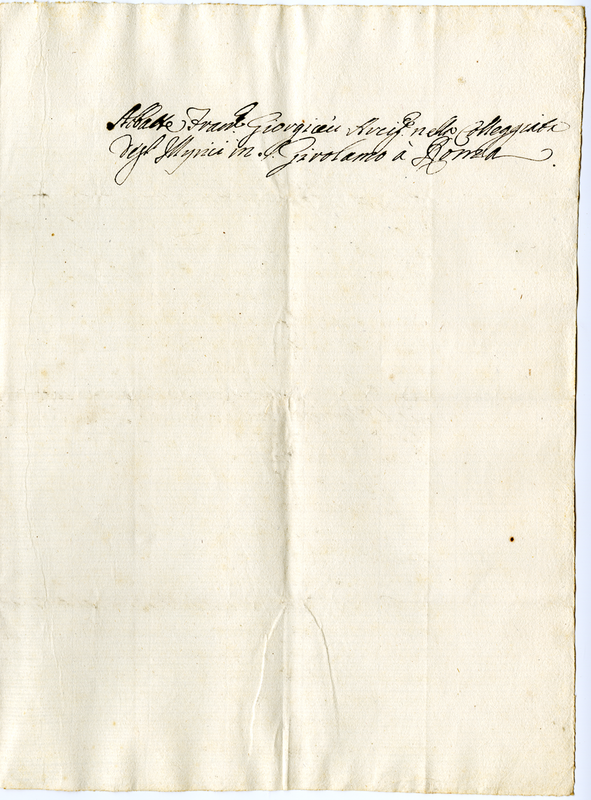 Abbate Fran.co Giorgiceo Arcip.e nella Colleggiata
degl'Illyrici in S. Girolamo à Roma